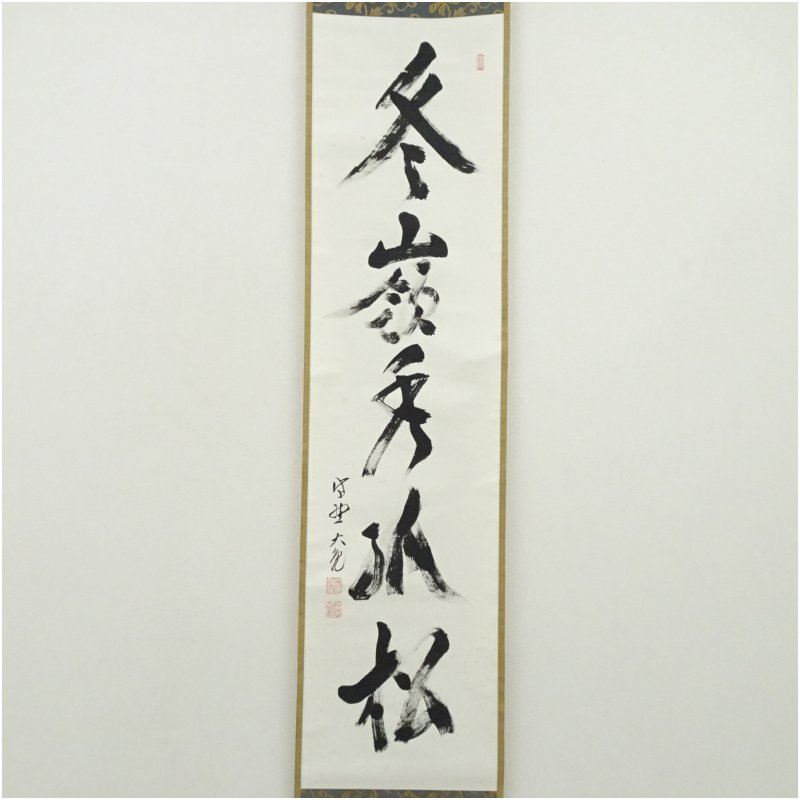 冬嶺秀孤松
大亀